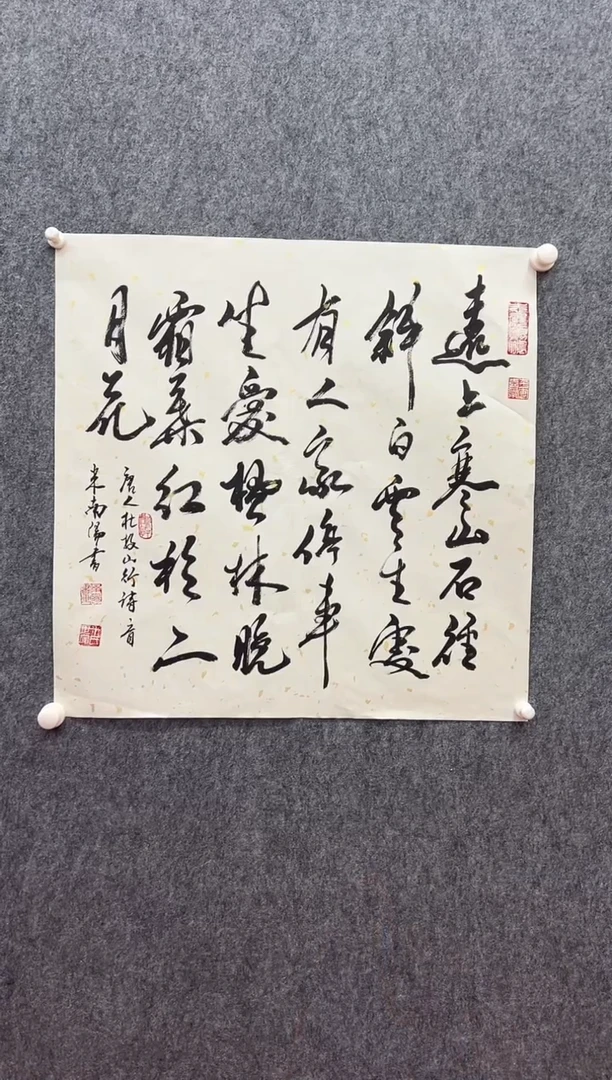 遠上寒山石徑
斜白雲生處
有人家停車
坐愛楓林晚
霜葉紅於二
月花
唐人杜牧山行詩一首
米南陽書